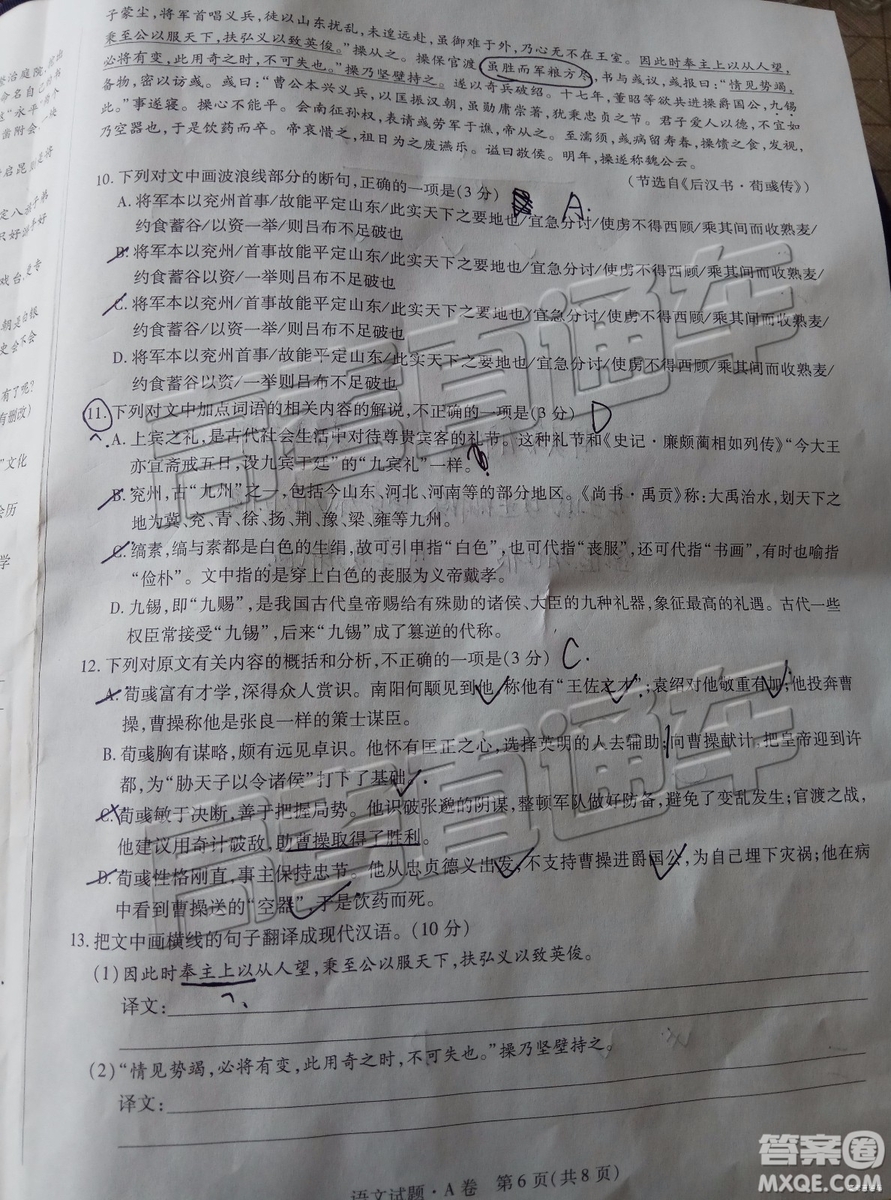 子蒙尘，将军首唱义兵，徒以山东扰乱，未遑远赴，虽御难于外，乃心无不在王室。因此时奉主上以从人望，
秉至公以服天下，扶弘义以致英俊。”操从之。操保官渡，虽胜而军粮方尽，书与彧议，彧报曰：“情见势竭，
必将有变，此用奇之时，不可失也。”操乃坚壁持之。遂以奇兵破绍。十七年，董昭等欲共进操爵国公，九锡
备物，密以访彧。彧曰：“曹公本兴义兵，以匡振汉朝，虽勋庸崇著，犹秉忠贞之节。君子爱人以德，不宜如
此。”事遂寝。操心不能平。会南征孙权，表请彧劳军于谯，帝从之。至濡须，彧病留寿春，操馈之食，发视，
乃空器也，于是饮药而卒。帝哀惜之，祖日为之废讌乐。谥曰敬侯。明年，操遂称魏公云。
（节选自《后汉书·荀彧传》）
10. 下列对文中画波浪线部分的断句，正确的一项是（3 分） A.
A. 将军本以兖州/首事故能平定山东/此实天下之要地也/宜急分讨/使虏不得西顾/乘其间而收熟麦/
约食蓄谷/以资一举/则吕布不足破也
B. 将军本以兖州/首事故能平定山东/此实天下之要地也/宜急分讨/使虏不得西顾/乘其间而收熟麦/
约食蓄谷以资/一举则吕布不足破也
C. 将军本以兖州首事/故能平定山东/此实天下之要地也/宜急分讨/使虏不得西顾/乘其间而收熟麦/
约食蓄谷/以资一举/则吕布不足破也
D. 将军本以兖州首事/故能平定山东/此实天下之要地也/宜急分讨/使虏不得西顾/乘其间而收熟麦/
约食蓄谷以资/一举则吕布不足破也
11. 下列对文中加点词语的相关内容的解说，不正确的一项是（3 分） D
A. 上宾之礼，是古代社会生活中对待尊贵宾客的礼节。这种礼节和《史记·廉颇蔺相如列传》“今大王
亦宜斋戒五日，设九宾于廷”的“九宾礼”一样。
B. 兖州，古“九州”之一，包括今山东、河北、河南等的部分地区。《尚书·禹贡》称：大禹治水，划天下之
地为冀、兖、青、徐、扬、荆、豫、梁、雍等九州。
C. 缟素，缟与素都是白色的生绢，故可引申指“白色”，也可代指“丧服”，还可代指“书画”，有时也喻指
“俭朴”。文中指的是穿上白色的丧服为义帝戴孝。
D. 九锡，即“九赐”，是我国古代皇帝赐给有殊勋的诸侯、大臣的九种礼器，象征最高的礼遇。古代一些
权臣常接受“九锡”，后来“九锡”成了篡逆的代称。
12. 下列对原文有关内容的概括和分析，不正确的一项是（3 分） C.
A. 荀彧富有才学，深得众人赏识。南阳何颙见到他，称他有“王佐之才”；袁绍对他敬重有加；他投奔曹
操，曹操称他是张良一样的策士谋臣。
B. 荀彧胸有谋略，颇有远见卓识。他怀有匡正之心，选择英明的人去辅助；向曹操献计，把皇帝迎到许
都，为“胁天子以令诸侯”打下了基础。
C. 荀彧敏于决断，善于把握局势。他识破张邈的阴谋，整顿军队做好防备，避免了变乱发生；官渡之战，
他建议用奇计破敌，助曹操取得了胜利。
D. 荀彧性格刚直，事主保持忠节。他从忠贞德义出发，不支持曹操进爵国公，为自己埋下灾祸；他在病
中看到曹操送的“空器”，于是饮药而死。
13. 把文中画横线的句子翻译成现代汉语。（10 分）
（1）因此时奉主上以从人望，秉至公以服天下，扶弘义以致英俊。
译文：
（2）“情见势竭，必将有变，此用奇之时，不可失也。”操乃坚壁持之。
译文：
语文试题·A 卷 第 6 页（共 8 页）
高考直通车
高考直通车
答案圈
MXQE.COM